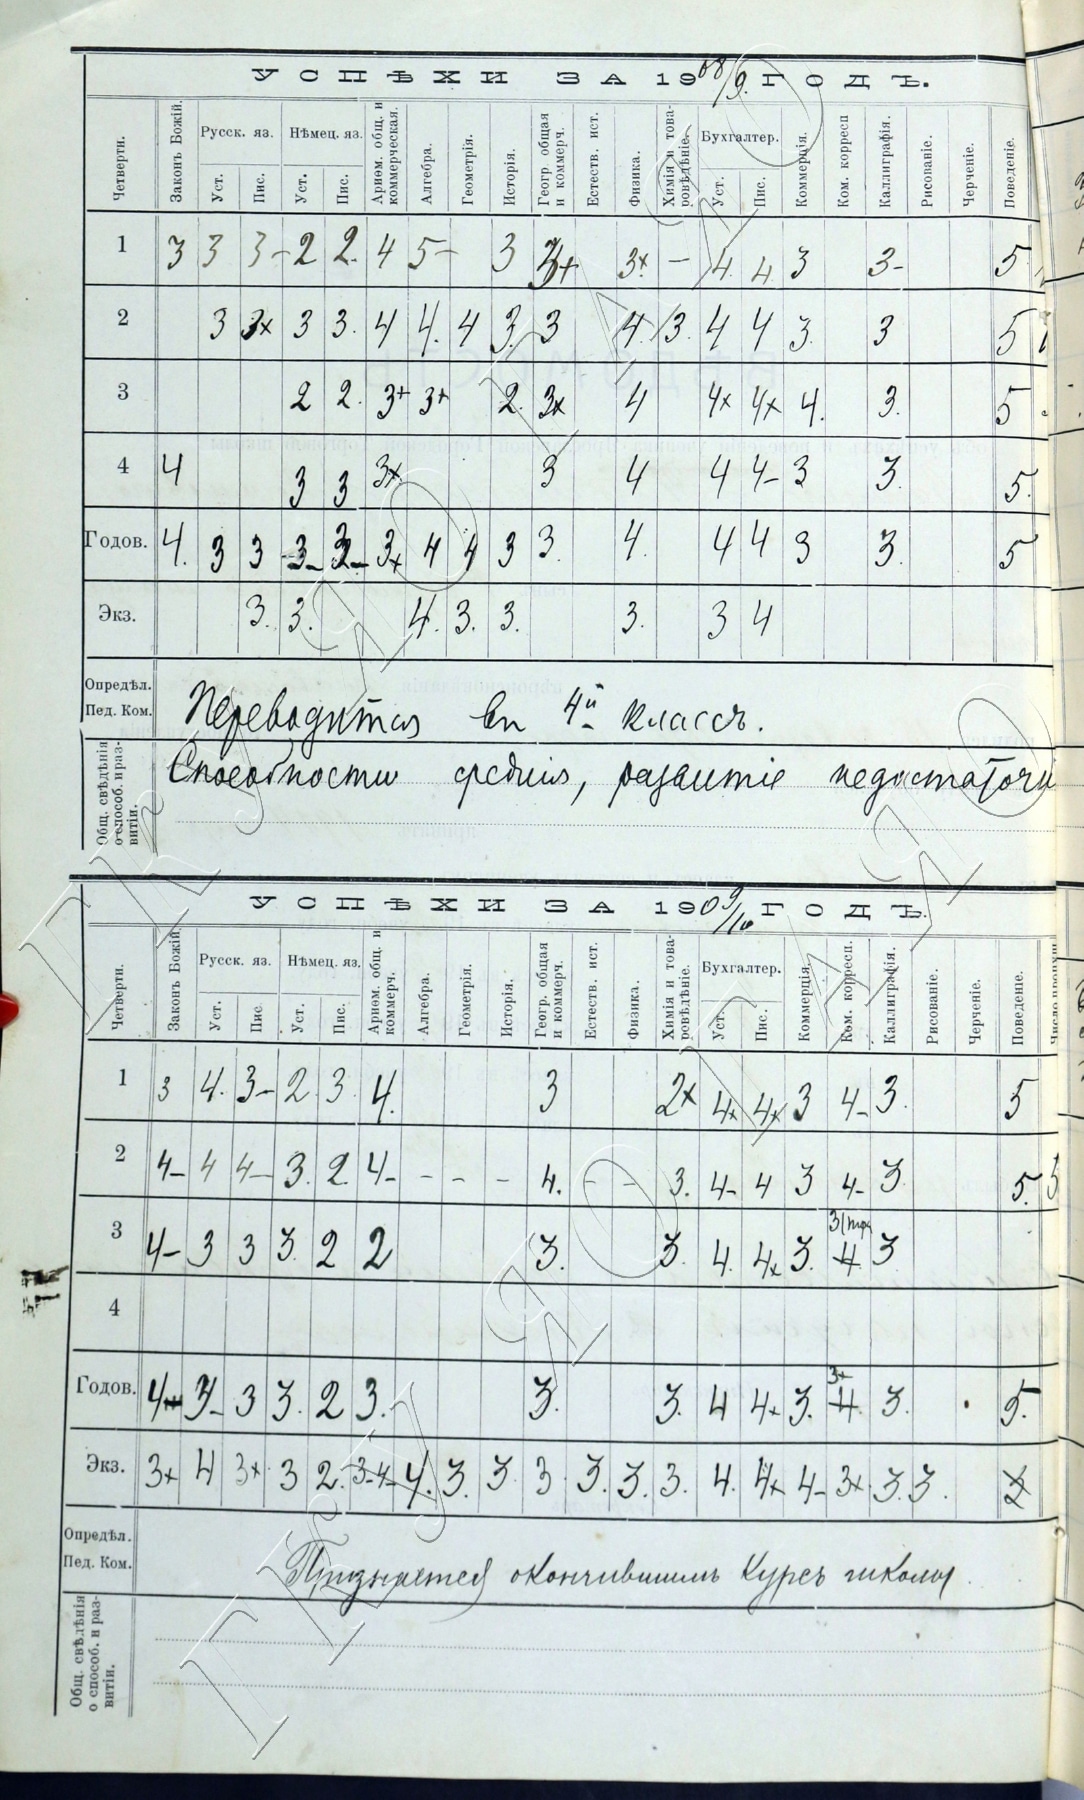 УСПѢХИ ЗА 1908/9. ГОДЪ.
Четверти. Законъ Божій. Русск. яз. Уст. Пис. Нѣмец. яз. Уст. Пис. Ариѳм. общ. и коммерческая. Алгебра. Геометрія. Исторія. Геогр общая и коммерч. Естеств. ист. Физика. Химія и това-ровѣдѣніе. Бухгалтер. Уст. Пис. Коммерція. Ком. корресп Каллиграфія. Рисованіе. Черченіе. Поведеніе.
1 3 3 3- 2 2. 4 5- 3 3+ 3x - 4. 4. 3 3- 5
2 3 3x 3 3. 4 4. 4 3. 3 4. 3. 4 4 3. 3 5
3 2 2. 3+ 3+ 2. 3x 4 4x 4x 4. 3. 5
4 4 3 3 3x 3 4 4 4- 3 3. 5.
Годов. 4. 3 3 3- 3- 3x 4 4 3 3. 4. 4 4 3 3. 5
Экз. 3. 3. 4. 3. 3. 3. 3 4
Опредѣл. Пед. Ком. Переводится въ 4й классъ.
Общ. свѣдѣнія о способ. и раз-витіи. Способности среднія, развитіе недостаточн
УСПѢХИ ЗА 1909/10 ГОДЪ.
Четверти. Законъ Божій. Русск. яз. Уст. Пис. Нѣмец. яз. Уст. Пис. Ариѳм. общ. и коммерч. Алгебра. Геометрія. Исторія. Геогр. общая и коммерч. Естеств. ист. Физика. Химія и това-ровѣдѣніе. Бухгалтер. Уст. Пис. Коммерція. Ком. корресп. Каллиграфія. Рисованіе. Черченіе. Поведеніе.
1 3 4. 3- 2 3. 4. 3 2x 4x 4x 3 4- 3. 5
2 4- 4 4- 3. 2. 4- - - - 4. - - 3. 4- 4 3 4- 3 5.
3 4- 3 3 3. 2 2 3. 3. 4. 4x 3. 4. 3
4
Годов. 4 3- 3 3. 2 3. 3. 3. 4 4x 3. 3+ 4. 3. 5.
Экз. 3+ 4 3x 3 2. 3-4- 4. 3. 3. 3 3. 3. 3. 4. 4x 4- 3x 3. 3.
Опредѣл. Пед. Ком. Признается окончившимъ курсъ школы
Общ. свѣдѣнія о способ. и раз-витіи.
ГКУ ЯО ГАЯО
ГКУ ЯО ГАЯО